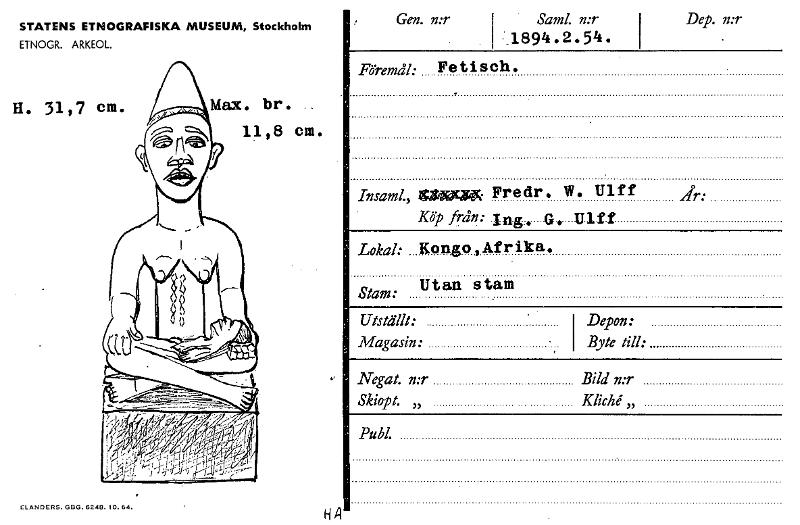 STATENS ETNOGRAFISKA MUSEUM, Stockholm
ETNOGR. ARKEOL.
H. 31,7 cm.
Max. br.
11,8 cm.
ELANDERS. GBG. 6248. 10. 64.
HA
Gen. n:r Saml. n:r Dep. n:r
1894.2.54.
Föremål: Fetisch.
Insaml., Fredr. W. Ulff År:
Köp från: Ing. G. Ulff
Lokal: Kongo, Afrika.
Stam: Utan stam
Utställt: Depon:
Magasin: Byte till:
Negat. n:r Bild n:r
Skiopt. „ Kliché „
Publ.